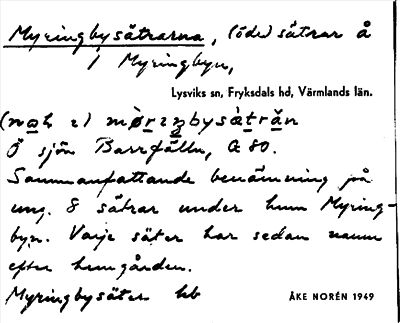 Myringbysätrarna, (öde) sätrar å
i Myringbyn,
Lysviks sn, Fryksdals hd, Värmlands län.
(nah 2)
Ö sjön Barrfälln, a 80.
Sammanfattande benämning på
ung. 8 sätrar under hum Myring-
byn. Varje säter har sedan namn
efter hemgården.
Myringbysäter hb
ÅKE NORÉN 1949